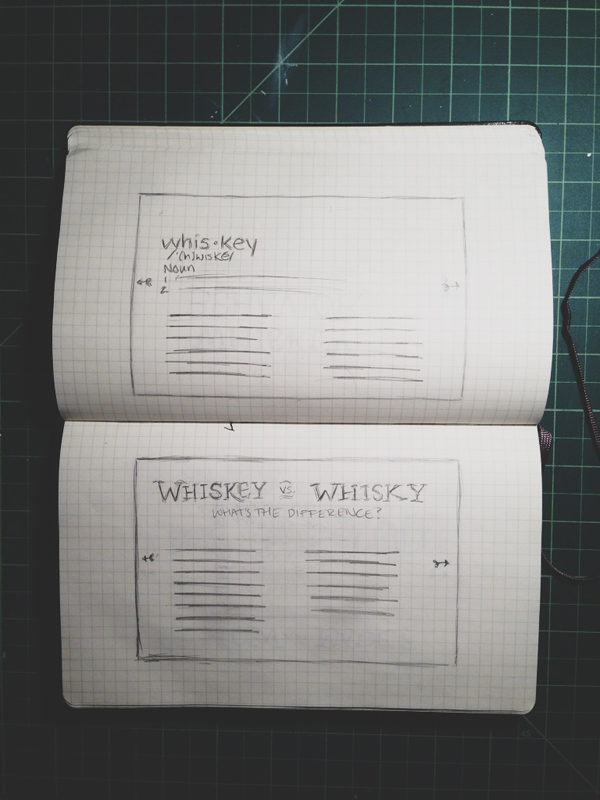 whis·key
/'(h)wiskē/
Noun
1
2
WHISKEY VS. WHISKY
WHAT'S THE DIFFERENCE?